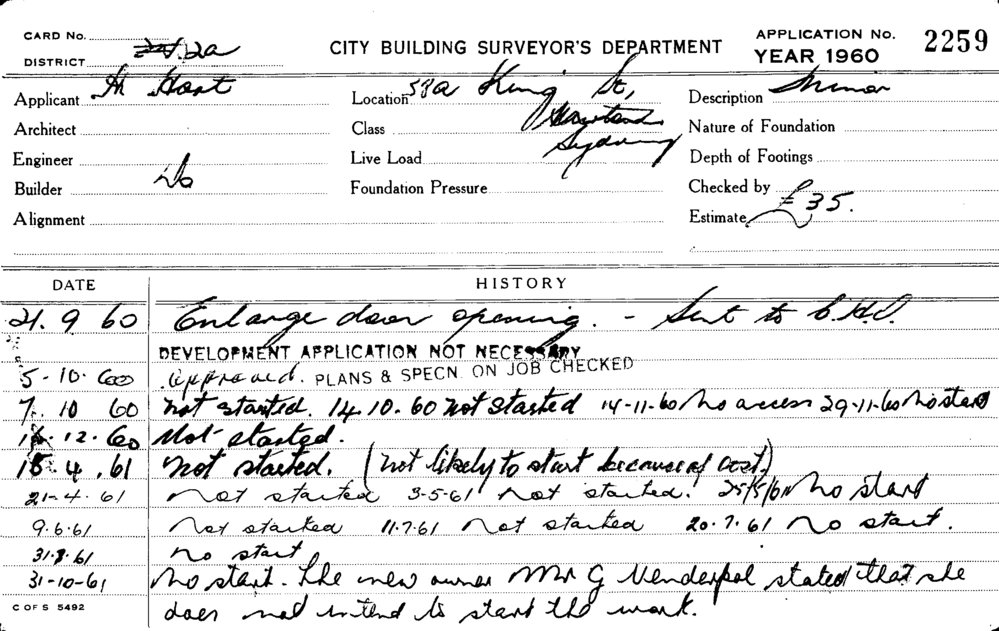 CARD No.
DISTRICT 2a
CITY BUILDING SURVEYOR'S DEPARTMENT
APPLICATION No. 2259
YEAR 1960
Applicant H Hart
Architect
Engineer
Builder do
Alignment
Location 53a King St,
Class
Sydney
Live Load
Foundation Pressure
Description Minor
Nature of Foundation
Depth of Footings
Checked by
Estimate £35.
DATE HISTORY
21. 9. 60 Enlarge door opening. - Sent to C.H.O.
DEVELOPMENT APPLICATION NOT NECESSARY
5-10-60 Approved. PLANS & SPECN. ON JOB CHECKED
7. 10 60 Not started. 14.10.60 Not started 14-11-60 No access 29-11-60 No start
12.60 Not started.
18.4.61 Not started. (Not likely to start because of cost.)
21-4.61 Not started 3-5-61 Not started. 25/5/61 No start
9.6.61 Not started 11.7.61 Not started 20.7.61 No start.
31.8.61 No start
31-10-61 No start. The new owner Mr G Venderpol stated that she
does not intend to start the work.
C OF S 5492